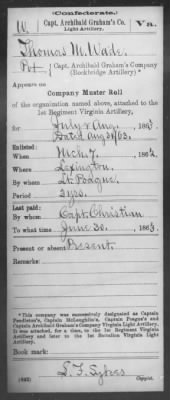 (Confederate.)
W. Capt. Archibald Graham's Co. Light Artillery. Va.
Thomas M. Wade.
Pvt., Capt. Archibald Graham's Company (Rockbridge Artillery).*
Appears on
Company Muster Roll
of the organization named above, attached to the
1st Regiment Virginia Artillery,
for July & Aug., 1863.
dated Aug 31/63.
Enlisted:
When Mch 7, 1862.
Where Lexington
By whom Lt. Poague
Period 3 yrs.
Last paid:
By whom Capt. Christian
To what time June 30, 1863.
Present or absent Present.
Remarks:
*This company was successively designated as Captain
Pendleton's, Captain McLaughlin's, Captain Poague's and
Captain Archibald Graham's Company Virginia Light Artillery.
It was attached, for a time, to the 1st Regiment Virginia
Artillery and later to the 1st Battalion Virginia Light
Artillery.
Book mark:
Copyist.